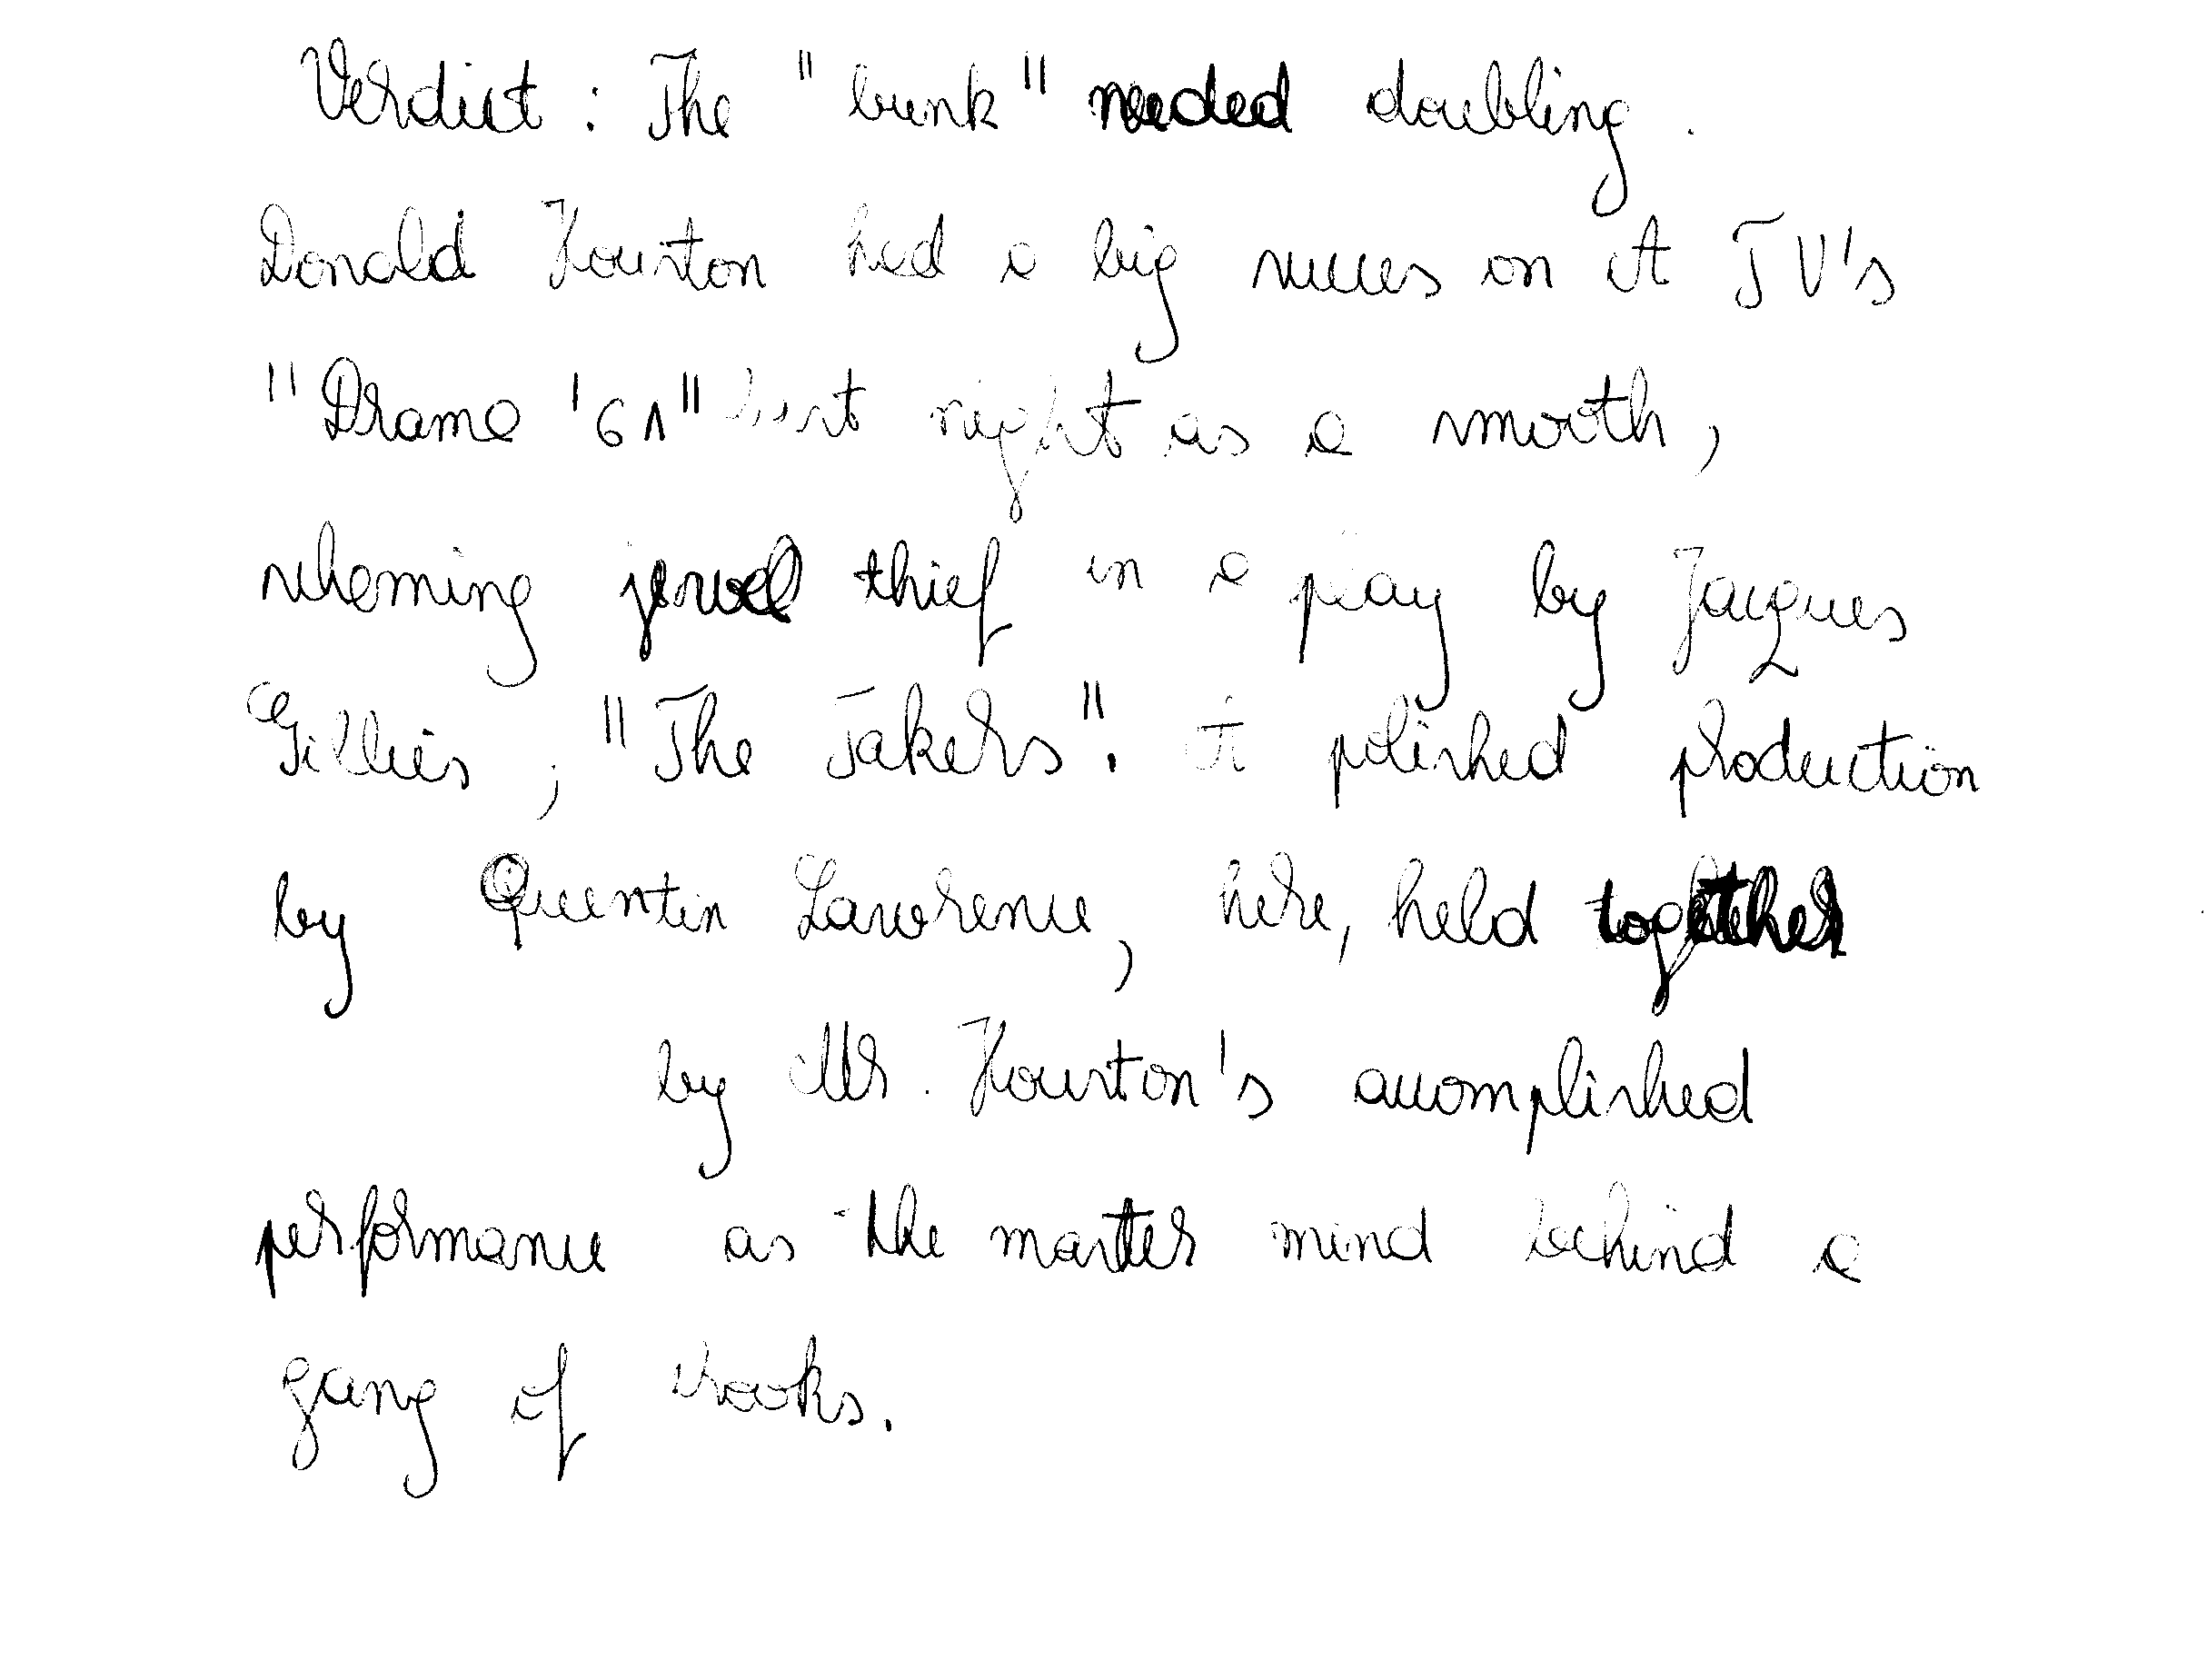 Verdict : The "bunk" needed doubling .
Donald Houston had a big succes on A TV's
"Drama '61" last night as a smooth ,
scheming jewel thief in a play by Jacques
Gillies , "The Takers". A polished production
by Quentin Lawrence , here, held together
by Mr . Houston's accomplished
performance as the master mind behind a
gang of crooks.